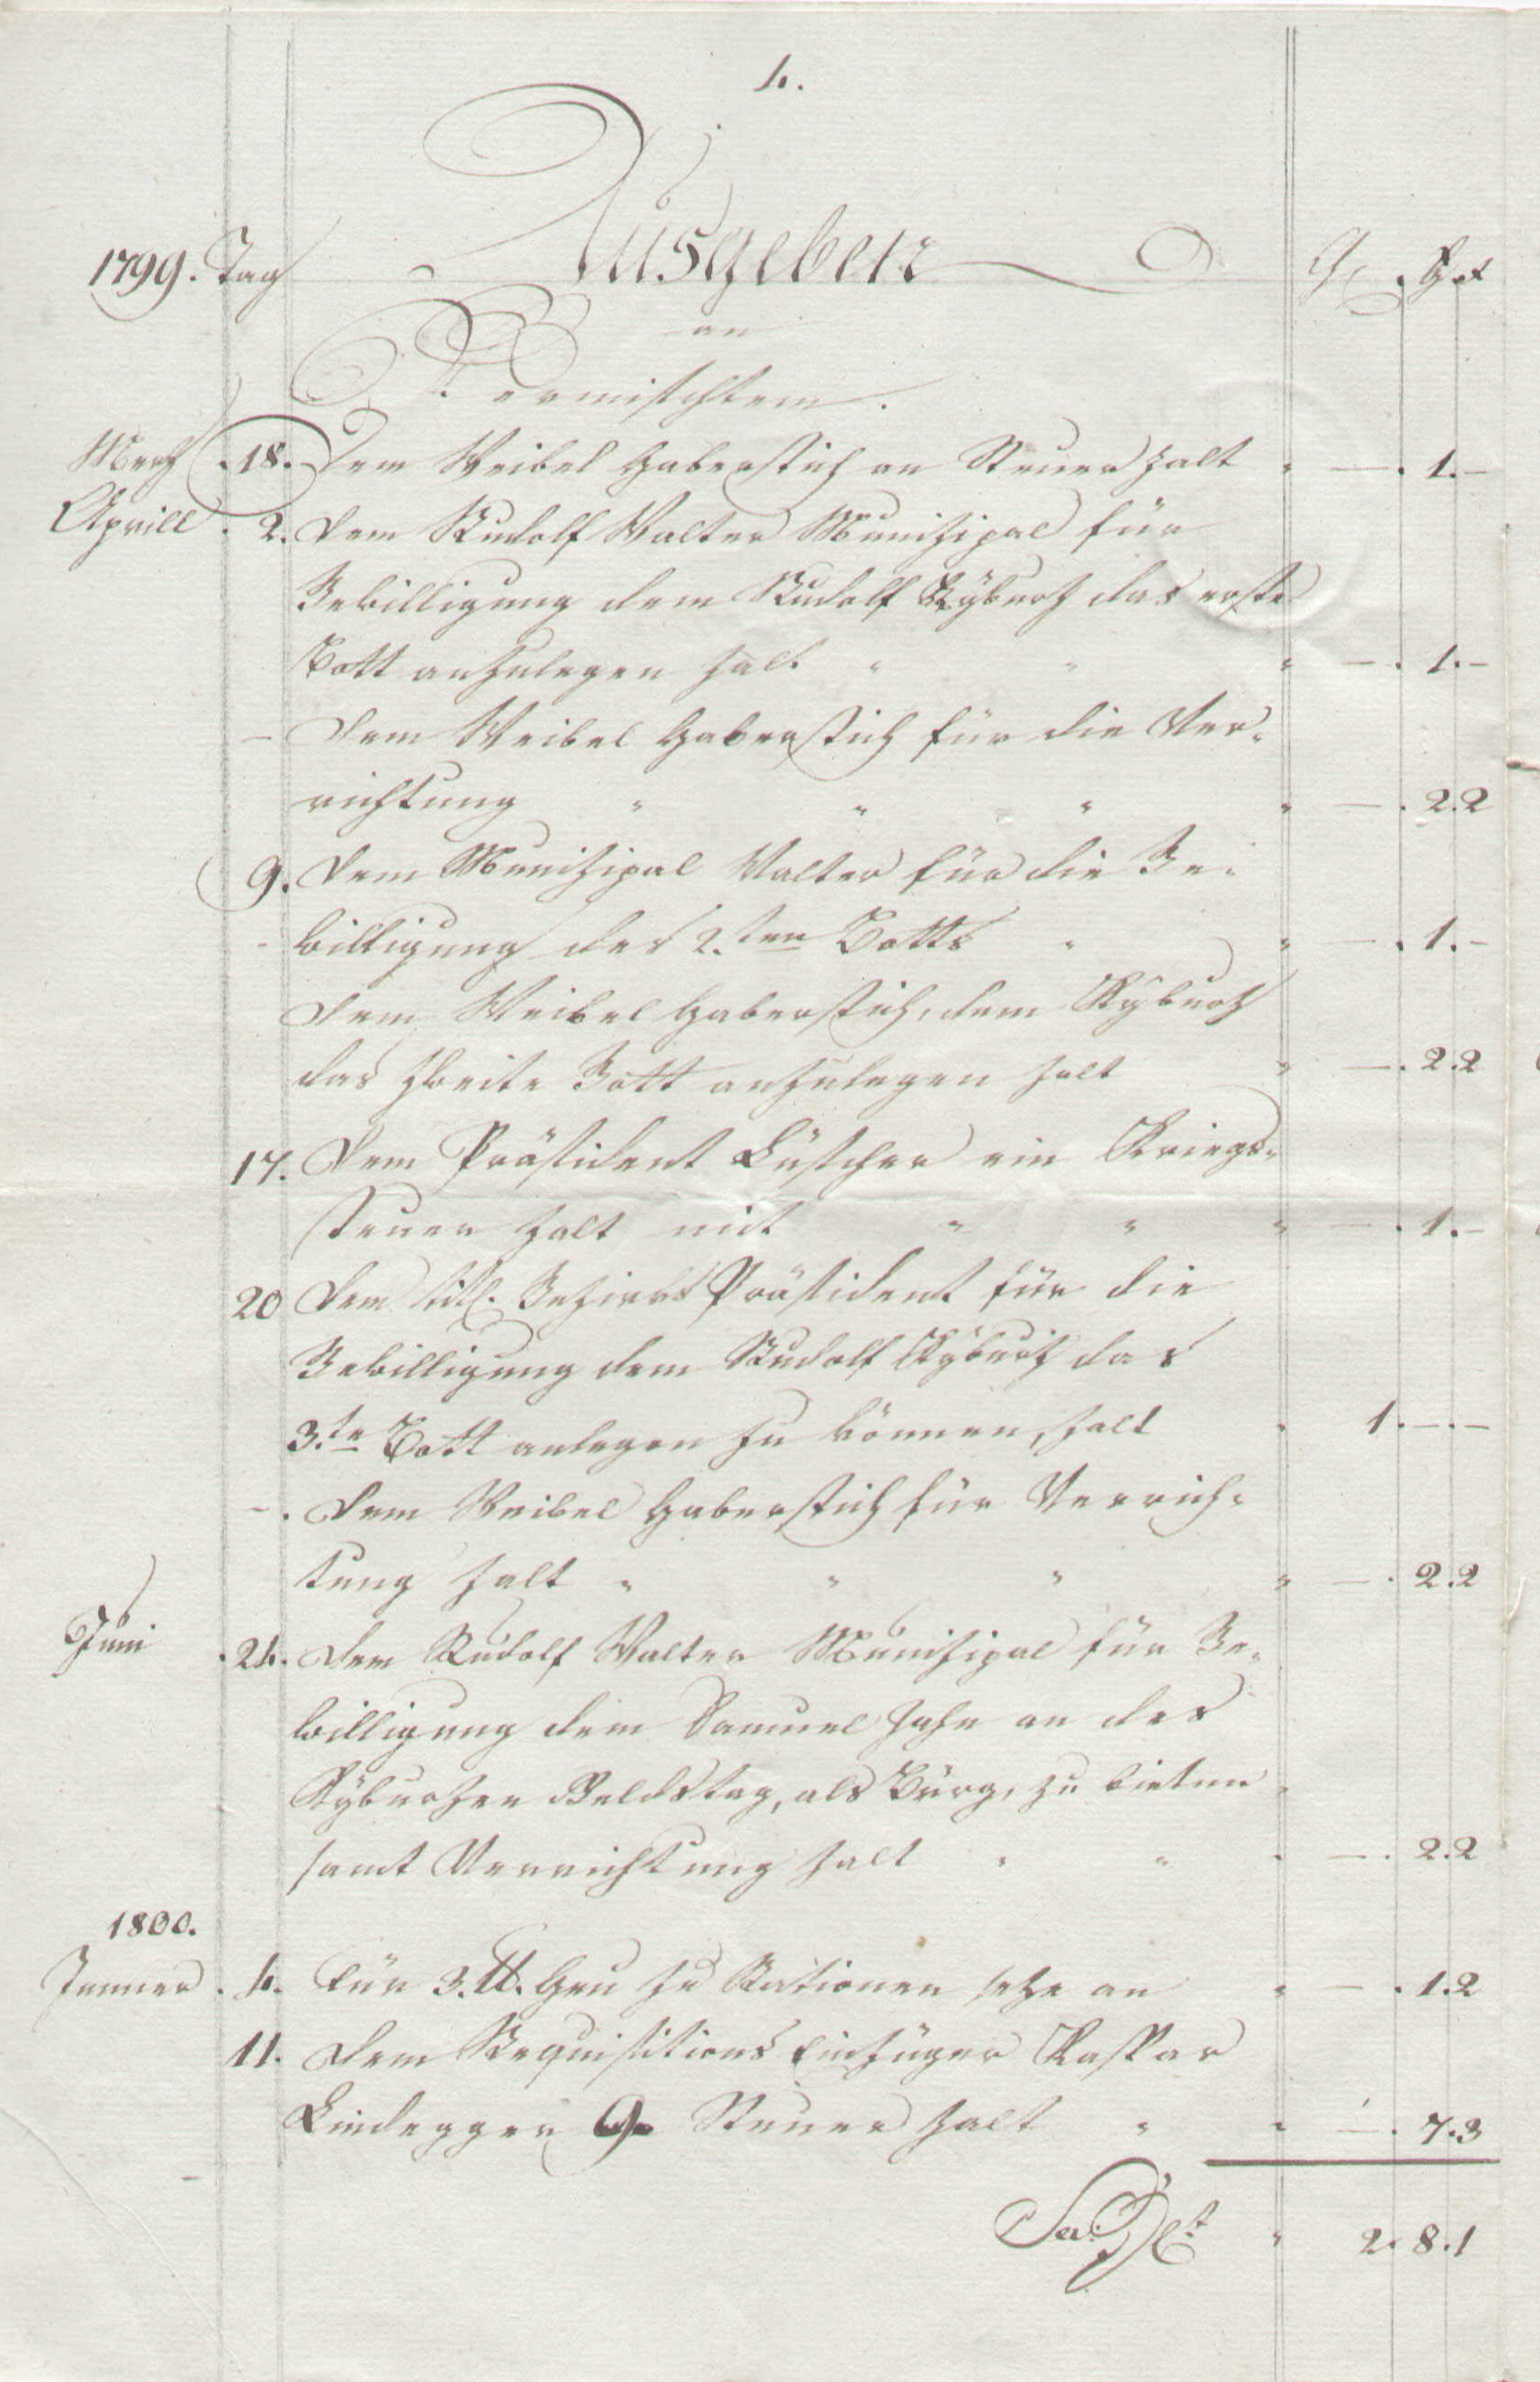 4.
1799. Tag Ausgeben
an
Vermischtem.
Merz .18. Dem Weibel Haberstich an Steuer zalt " — . 1. —
Aprill . 2. Dem Rudolf Walter Munizipal für
Bewilligung dem Rudolf Kÿburz das erste
Bott anzulegen zalt " " " — . 1. —
— Dem Weibel Haberstich für die Ver-
richtung " " " " — . 2.2
9. Dem Munizipal Walter für die Be-
- willigung des 2.ten Botts " " — . 1. —
Dem Weibel Haberstich, dem Kÿburz
das zweite Bott anzulegen zalt " — . 2.2
17. Dem Präsident Lüscher ein Kriegs-
steuer zalt mit " " " — . 1. —
20 Dem titl. Bezirks Präsident für die
Bewilligung dem Rudolf Kÿburz das
3.te Bott anlegen zu können, zalt " 1. — . —
— . Dem Weibel Haberstich für Verrich-
tung zalt " " " " — . 2.2
Juni . 24. Dem Rudolf Walter Munizipal für Be-
willigung dem Samuel Hahn an der
Kÿburzen Geldstag, als Bürg, zu bieten
samt Verrichtung zalt " " " — . 2.2
1800.
Jenner . 4. Für 3. ℔. Heu zu Rationen setze an " — . 1.2
11. Dem Requisitions Einzüger Kaspar
Lindegger 9. Steuer zalt " " — . 7.3
" 2. 8.1